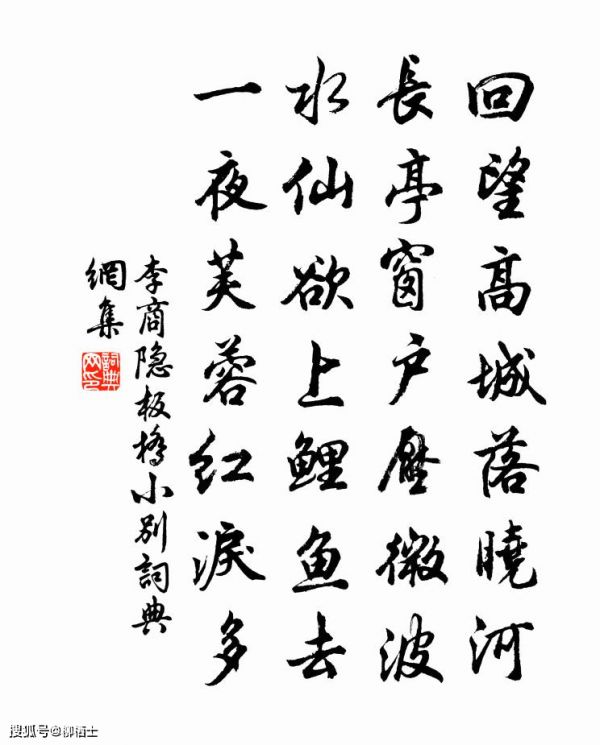 回望高城落曉河
長亭窗户壓微波
水仙欲上鲤鱼去
一夜芙蓉红淚多
李商隐板橋小别詞典
網集
詞典
网印
搜狐号@柳栖士